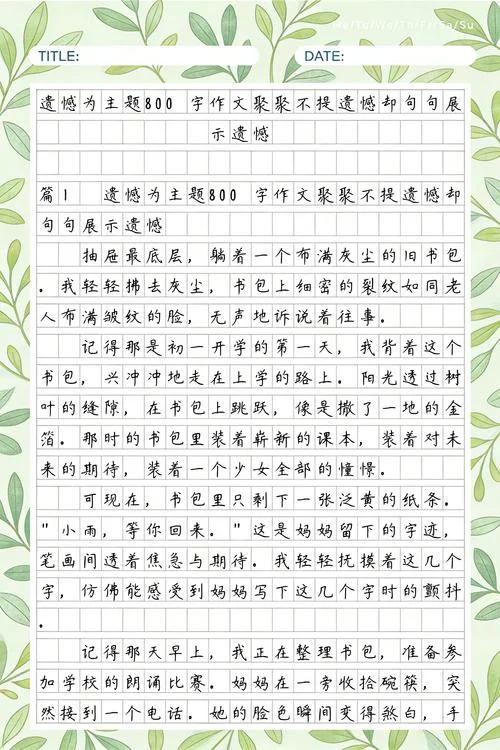 Mo/Tu/We/Th/Fr/Sa/Su
TITLE:
DATE:
遗憾为主题800 字作文聚聚不提遗憾却句句展
示遗憾
篇1 遗憾为主题800 字作文聚聚不提遗憾却
句句展示遗憾
抽屉最底层，躺着一个布满灰尘的旧书包
。我轻轻拂去灰尘，书包上细密的裂纹如同老
人布满皱纹的脸，无声地诉说着往事。
记得那是初一开学的第一天，我背着这个
书包，兴冲冲地走在上学的路上。阳光透过树
叶的缝隙，在书包上跳跃，像是撒了一地的金
箔。那时的书包里装着崭新的课本，装着对未
来的期待，装着一个少女全部的憧憬。
可现在，书包里只剩下一张泛黄的纸条。
"小雨，等你回来。"这是妈妈留下的字迹，
笔画间透着焦急与期待。我轻轻抚摸着这几个
字，仿佛能感受到妈妈写下这几个字时的颤抖
。
记得那天早上，我正在整理书包，准备参
加学校的朗诵比赛。妈妈在一旁收拾碗筷，突
然接到一个电话。她的脸色瞬间变得煞白，手